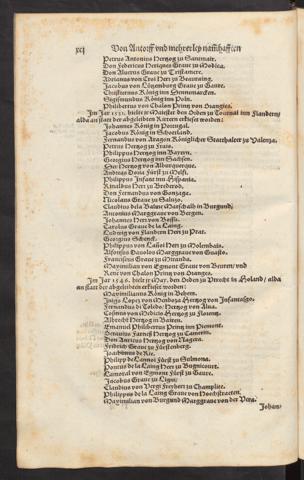 xcj Von Antorff vnd mehrerley namhafften
Petrus Antonius Hertzog zu Sanmatt.
Don Federicus Heriques Graue zu Modica.
Don Aluerus Graue zu Tristamere.
Adrianus von Croi Herr zu Beaurains.
Jacobus von Lützenburg Graue zu Gaure.
Christiernus König inn Dennmarcken.
Sigismundus König inn Poln.
Philibertus von Chalon Printz von Orangies.
Im Jar 1531. hielt jr Maiestet den Orden zu Tournai inn Flandern/
alda an statt der abgeleibten Rittern erkieset worden:
Johannes König in Portugal.
Jacobus König in Schotland.
Fernandus von Aragon Königlicher Statthalter zu Valentz.
Petrus Hertzog zu Frais.
Philippus Hertzog inn Bayern.
Georgius Hertzog inn Sachsen.
Hertzog von Albuquerque.
Andreas Doria Fürst zu Melfi.
Philippus Infant inn Hispania.
Rinaldus Herr zu Brederod.
Don Fernandus von Gonzage.
Nicolaus Graue zu Salutzo.
Claudius de la Balme Marschalck in Burgund.
Antonius Marggraue von Bergen.
Johannes Herr von Bossu.
Carolus Graue de la Laing.
Ludwig von Flandern Herr zu Prat.
Georgius Schenck.
Philippus von Lannoi Herr zu Molembais.
Alfonsus Daualos Marggraue von Guasto.
Franciscus Graue zu Miranda.
Maximilian von Egmont Graue von Beuren/ vnd
René von Chalon Printz von Orangies.
Im Jar 1546. hielt jr May. den Orden zu Vtrecht in Holand/ alda
an statt der abgeleibten erkieset worden:
Maximilianus König in Behem.
Inigo Lopez von Mendoza Hertzog von Infantasgo.
Fernandus di Toledo/ Hertzog von Alua.
Cosmus von Medicis Hertzog zu Florentz.
Albrecht Hertzog in Baiern.
Emanuel Philibertus Printz inn Piemont.
Octauius Farnese Hertzog zu Camerin.
Don Anricus Hertzog von Nagera.
Fridrich Graue zu Fürstenberg.
Joachimus de Rie.
Philipp de Lannoi Fürst zu Sulmona.
Pontus de la Laing Herr zu Bugnicourt.
Lamoral von Egmont Fürst zu Gaure.
Jacobus Graue zu Ligni.
Claudius von Vergi Freyherr zu Champlite.
Philippus de la Laing Graue von Hochstraeten.
Maximilian von Burgund Marggraue von der Vera.
Johan/